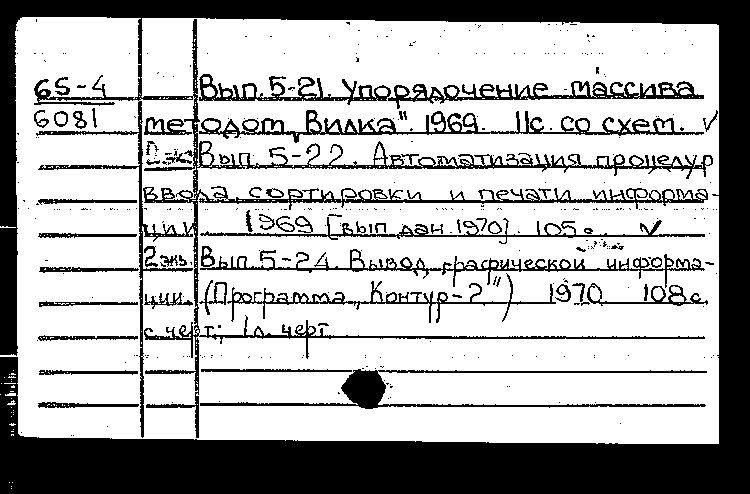 65-4 Вып. 5-21. Упорядочение массива
6081 методом „Вилка". 1969. 11с. со схем. ✓
2 экз Вып. 5-22. Автоматизация процедур
ввода, сортировки и печати информа-
ции 1969 [вып дан. 1970]. 105с. ✓
2 экз. Вып. 5-24. Вывод графической информа-
ции. (Программа „Контур-2") 1970 108с.
с черт.; 1л. черт.